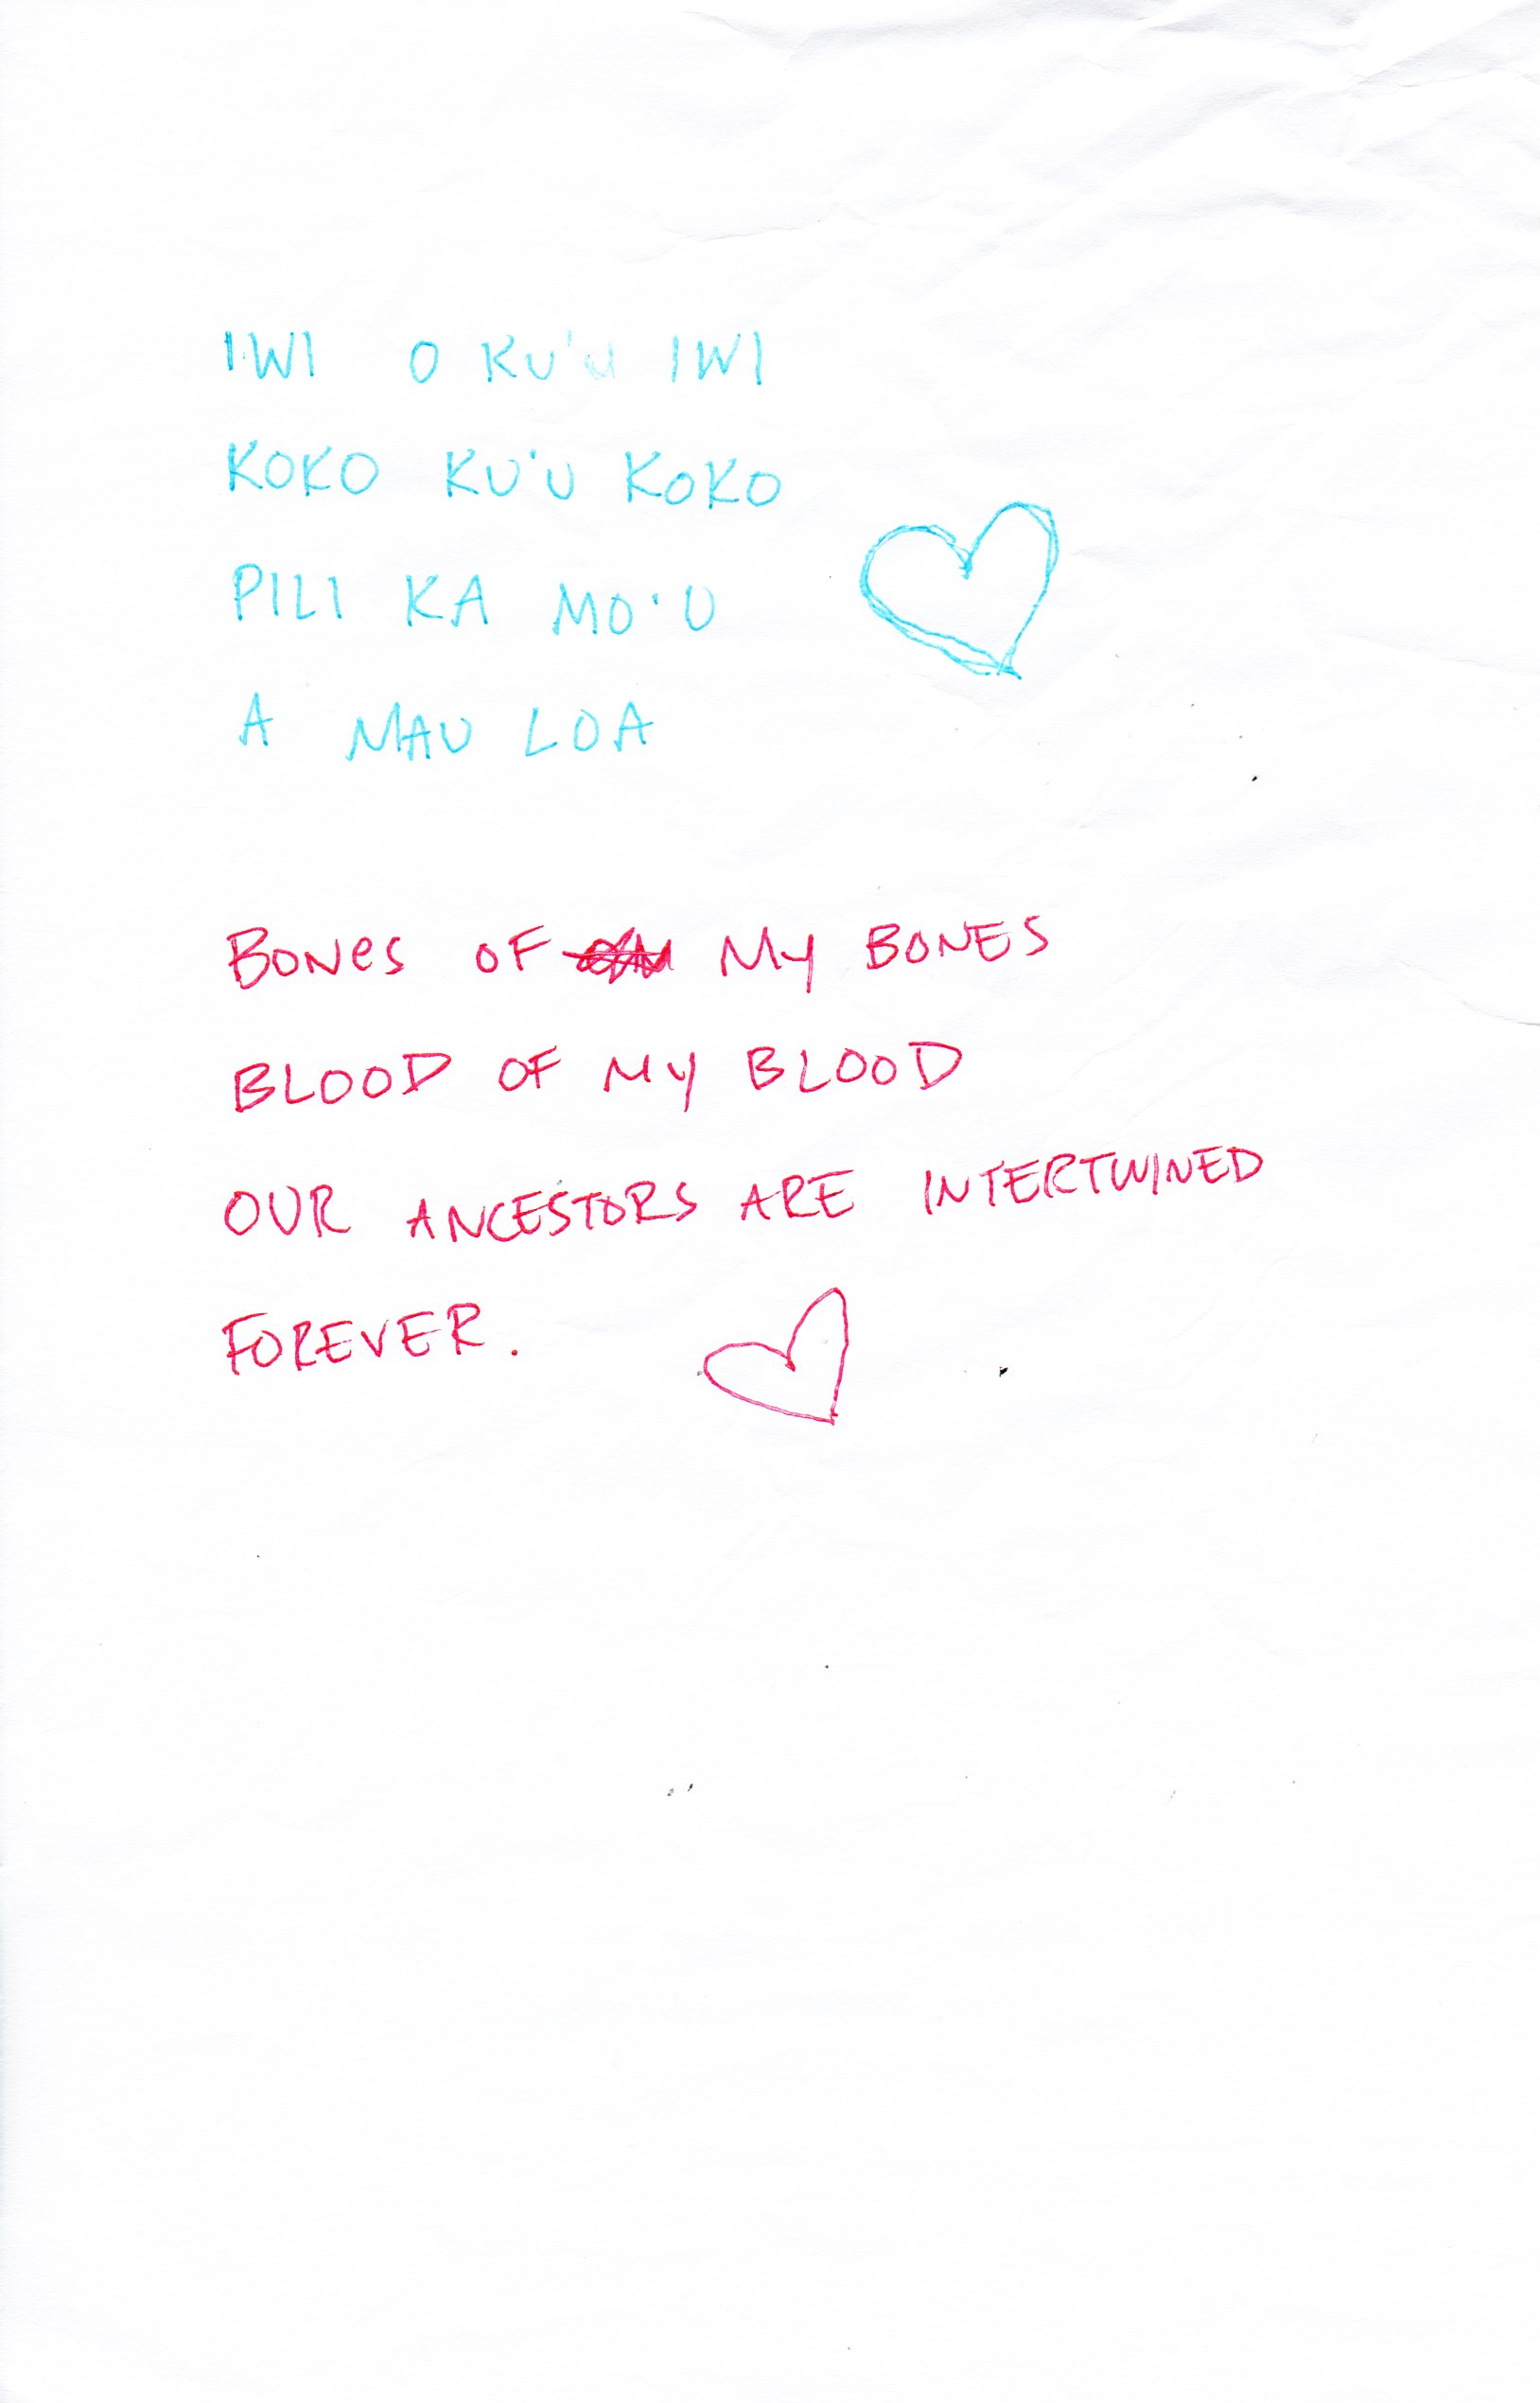 IWI O KU'U IWI
KOKO KU'U KOKO
PILI KA MO'O
A MAU LOA
BONES OF MY BONES
BLOOD OF MY BLOOD
OUR ANCESTORS ARE INTERTWINED
FOREVER.